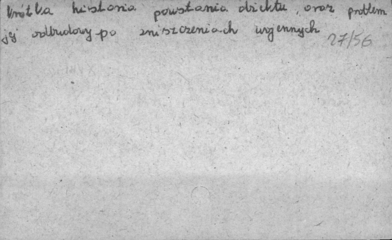 krótka historia powstania obiektu, oraz problem
jej odbudowy po zniszczeniach wojennych
27/56